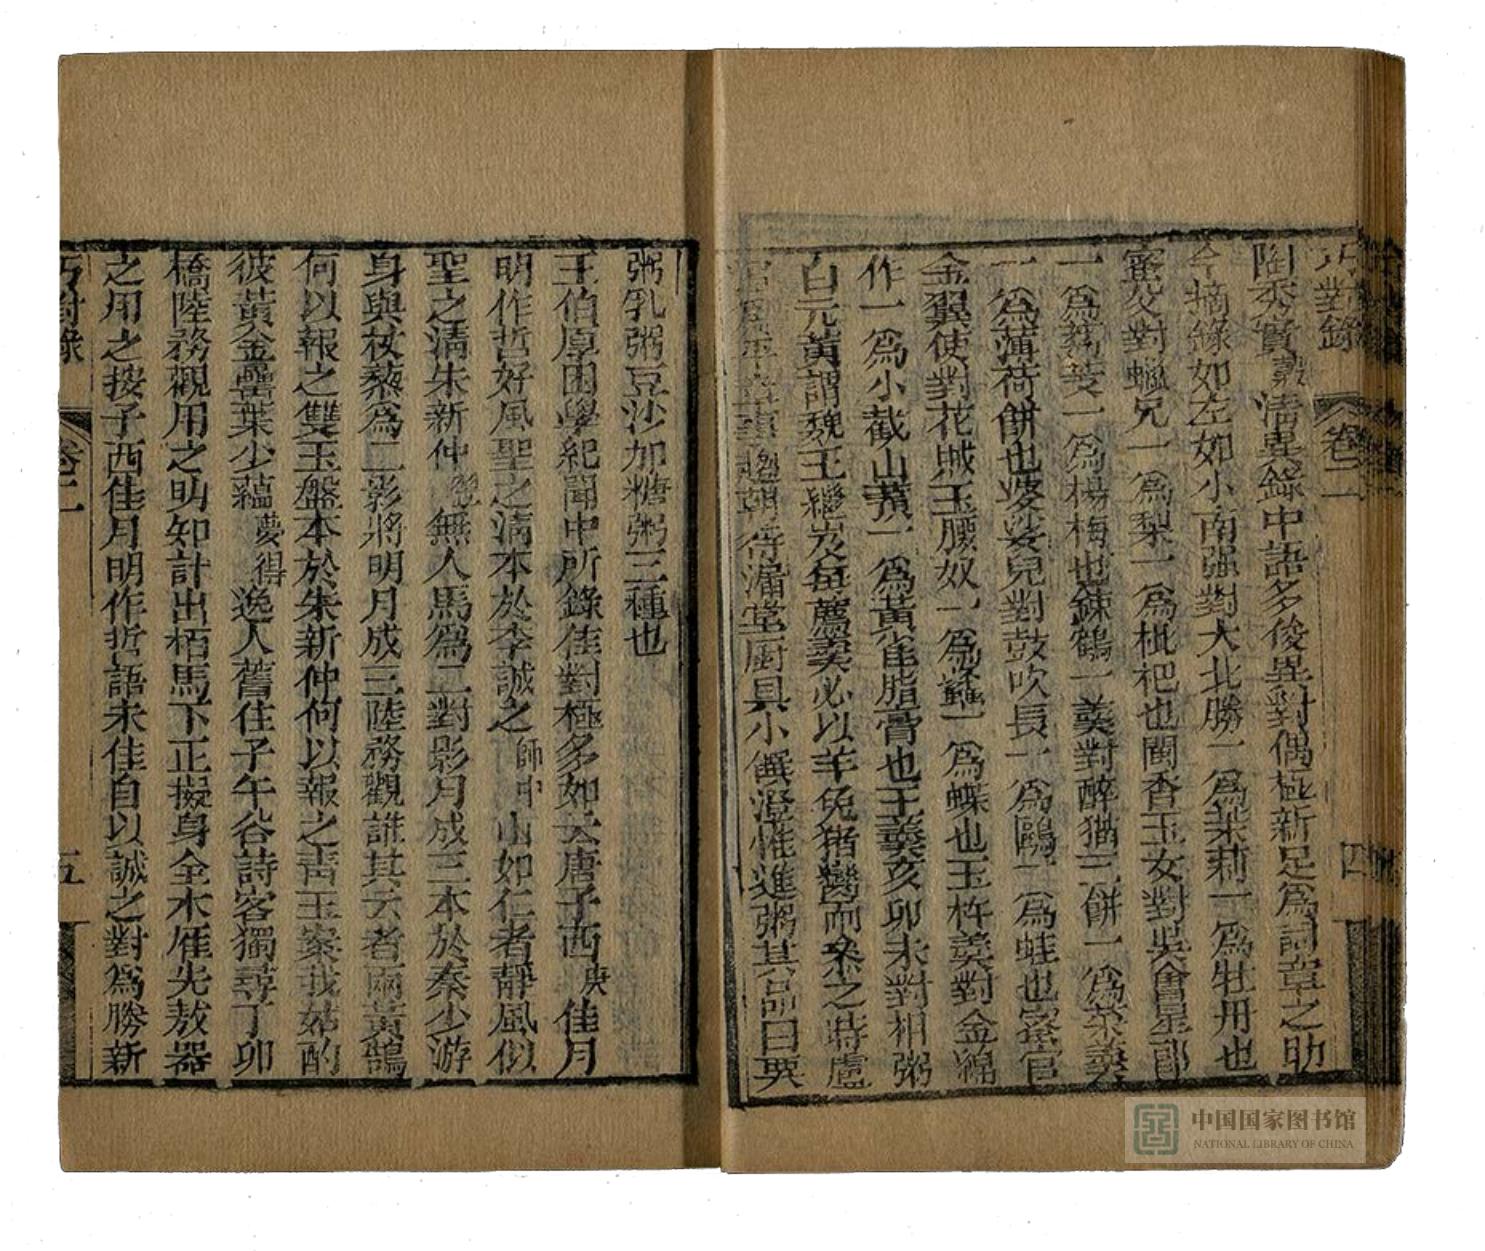 巧對錄 卷二 四
陶秀實穀清異錄中語多俊異對偶極新足爲詞章之助
今摘錄如左如小南强對大北勝一爲茉莉一爲牡丹也
蜜父對蠟兄一爲梨一爲枇杷也閩香玉女對吳會星郎
一爲荔支一爲楊梅也鍊鶴一羹對醉猫三餅一爲茶羹
一爲薄荷餅也婆娑兒對鼓吹長一爲鷗一爲蛙也蜜官
金翼使對花賊玉腰奴一爲蠭一爲蝶也玉杵羹對金綿
作一爲小截山蕷一爲黃雀脂膏也王羹亥卯未對相粥
白元黃謂魏王繼岌每薦羹必以羊兔猪臠而叅之時盧
趨朝待漏堂厨具小饌澄惟進粥其品曰粟
粥乳粥豆沙加糖粥三種也
王伯厚困學紀聞中所錄佳對極多如云唐子西庚佳月
明作哲好風聖之淸本於李誠之師中山如仁者靜風似
聖之淸朱新仲翌無人馬爲二對影月成三本於秦少游
身與杖藜爲二影將明月成三陸務觀誰其云者兩黃鵠
何以報之雙玉盤本於朱新仲何以報之靑玉案我姑酌
彼黃金罍葉少蘊夢得逸人舊住子午谷詩客獨尋丁卯
橋陸務觀用之明知計出栢馬下正擬身全木雁先敖器
之用之按子西佳月明作哲語未佳自以誠之對爲勝新
巧對錄 卷二 五
中国国家图书馆
NATIONAL LIBRARY OF CHINA